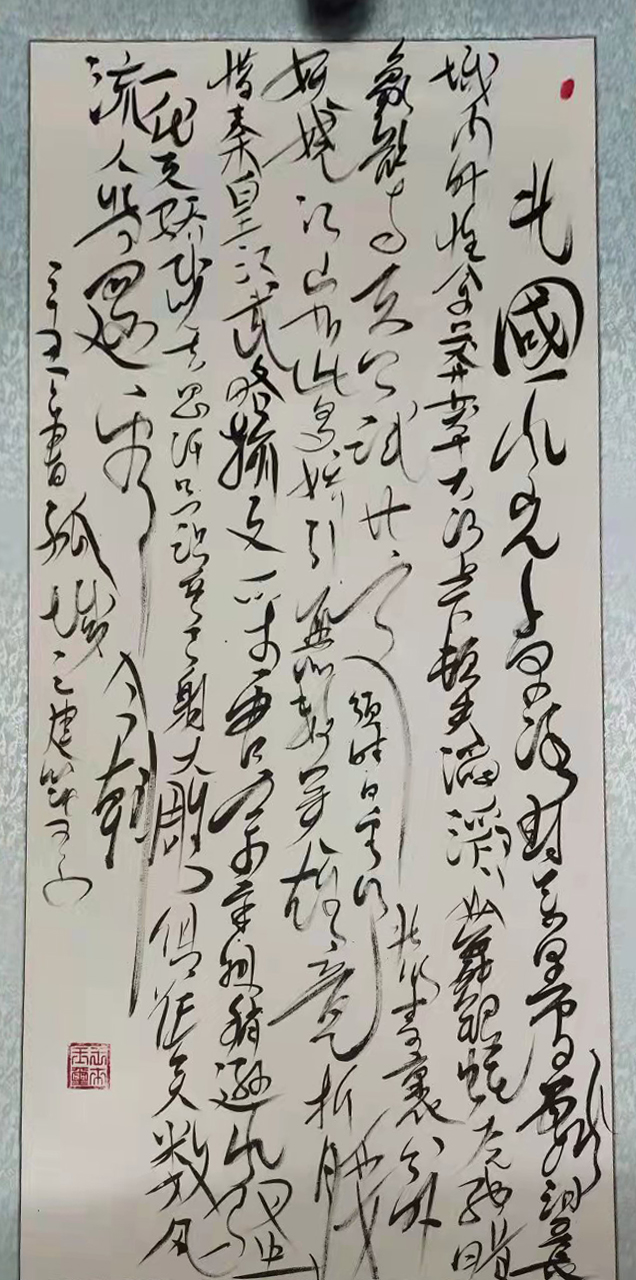 北國風光千里冰封萬里雪飄望長
城内外惟餘莽莽大河上下頓失滔滔山舞銀蛇原馳蠟
象欲與天公試比高須晴日看紅裝素裹分外
妖嬈江山如此多嬌引無數英雄競折腰
惜秦皇漢武略輸文采唐宗宋祖稍遜風騷
一代天驕成吉思汗只識彎弓射大雕俱往矣數風
流人物還看今朝
書孤城